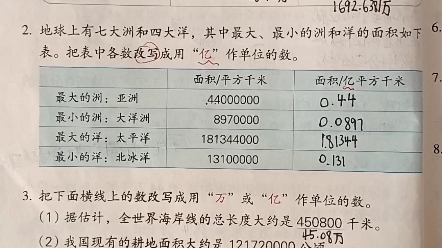 1692.6381万
2. 地球上有七大洲和四大洋，其中最大、最小的洲和洋的面积如下
表。把表中各数改写成用“亿”作单位的数。
面积/平方千米 面积/亿平方千米
最大的洲：亚洲 44000000 0.44
最小的洲：大洋洲 8970000 0.0897
最大的洋：太平洋 181344000 1.81344
最小的洋：北冰洋 13100000 0.131
3. 把下面横线上的数改写成用“万”或“亿”作单位的数。
(1) 据估计，全世界海岸线的总长度大约是 450800 千米。
45.08万
(2) 我国现有的耕地面积大约是 121720000 公顷
6.
7.
8.